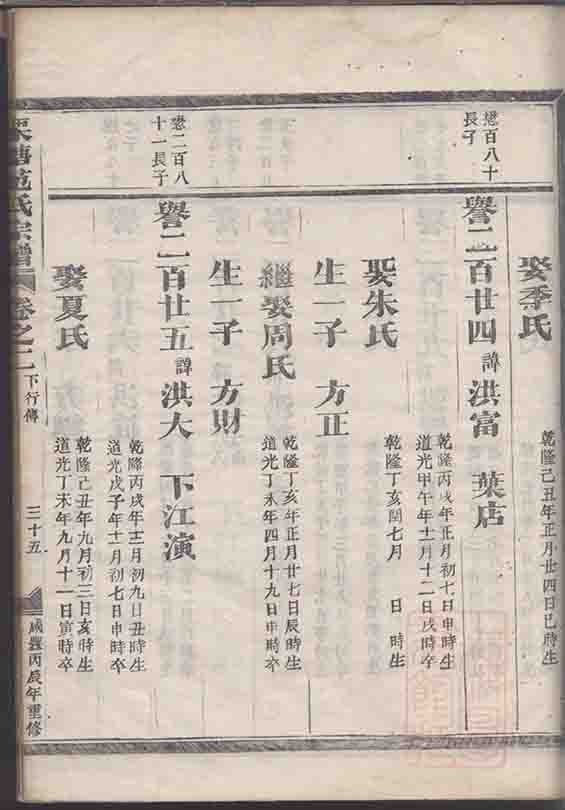 娶季氏
乾隆己丑年正月廿四日巳時生
懋百八十
長子
譽二百廿四 諱 洪富 葉店
乾隆丙戌年正月初七日申時生
道光甲午年十一月十二日戌時卒
娶朱氏
乾隆丁亥閏七月 日 時生
生一子 方正
繼娶周氏
乾隆丁亥年正月廿七日辰時生
道光丁未年四月十九日申時卒
生一子 方財
懋二百八
十一長子
譽二百廿五 諱 洪大 下江演
乾隆丙戌年十二月初九日丑時生
道光戊子年十一月初七日申時卒
娶夏氏
乾隆己丑年九月初三日亥時生
道光丁未年九月十一日寅時卒
范氏宗譜 卷之二 下行傳 三十五 咸豐丙辰年重修